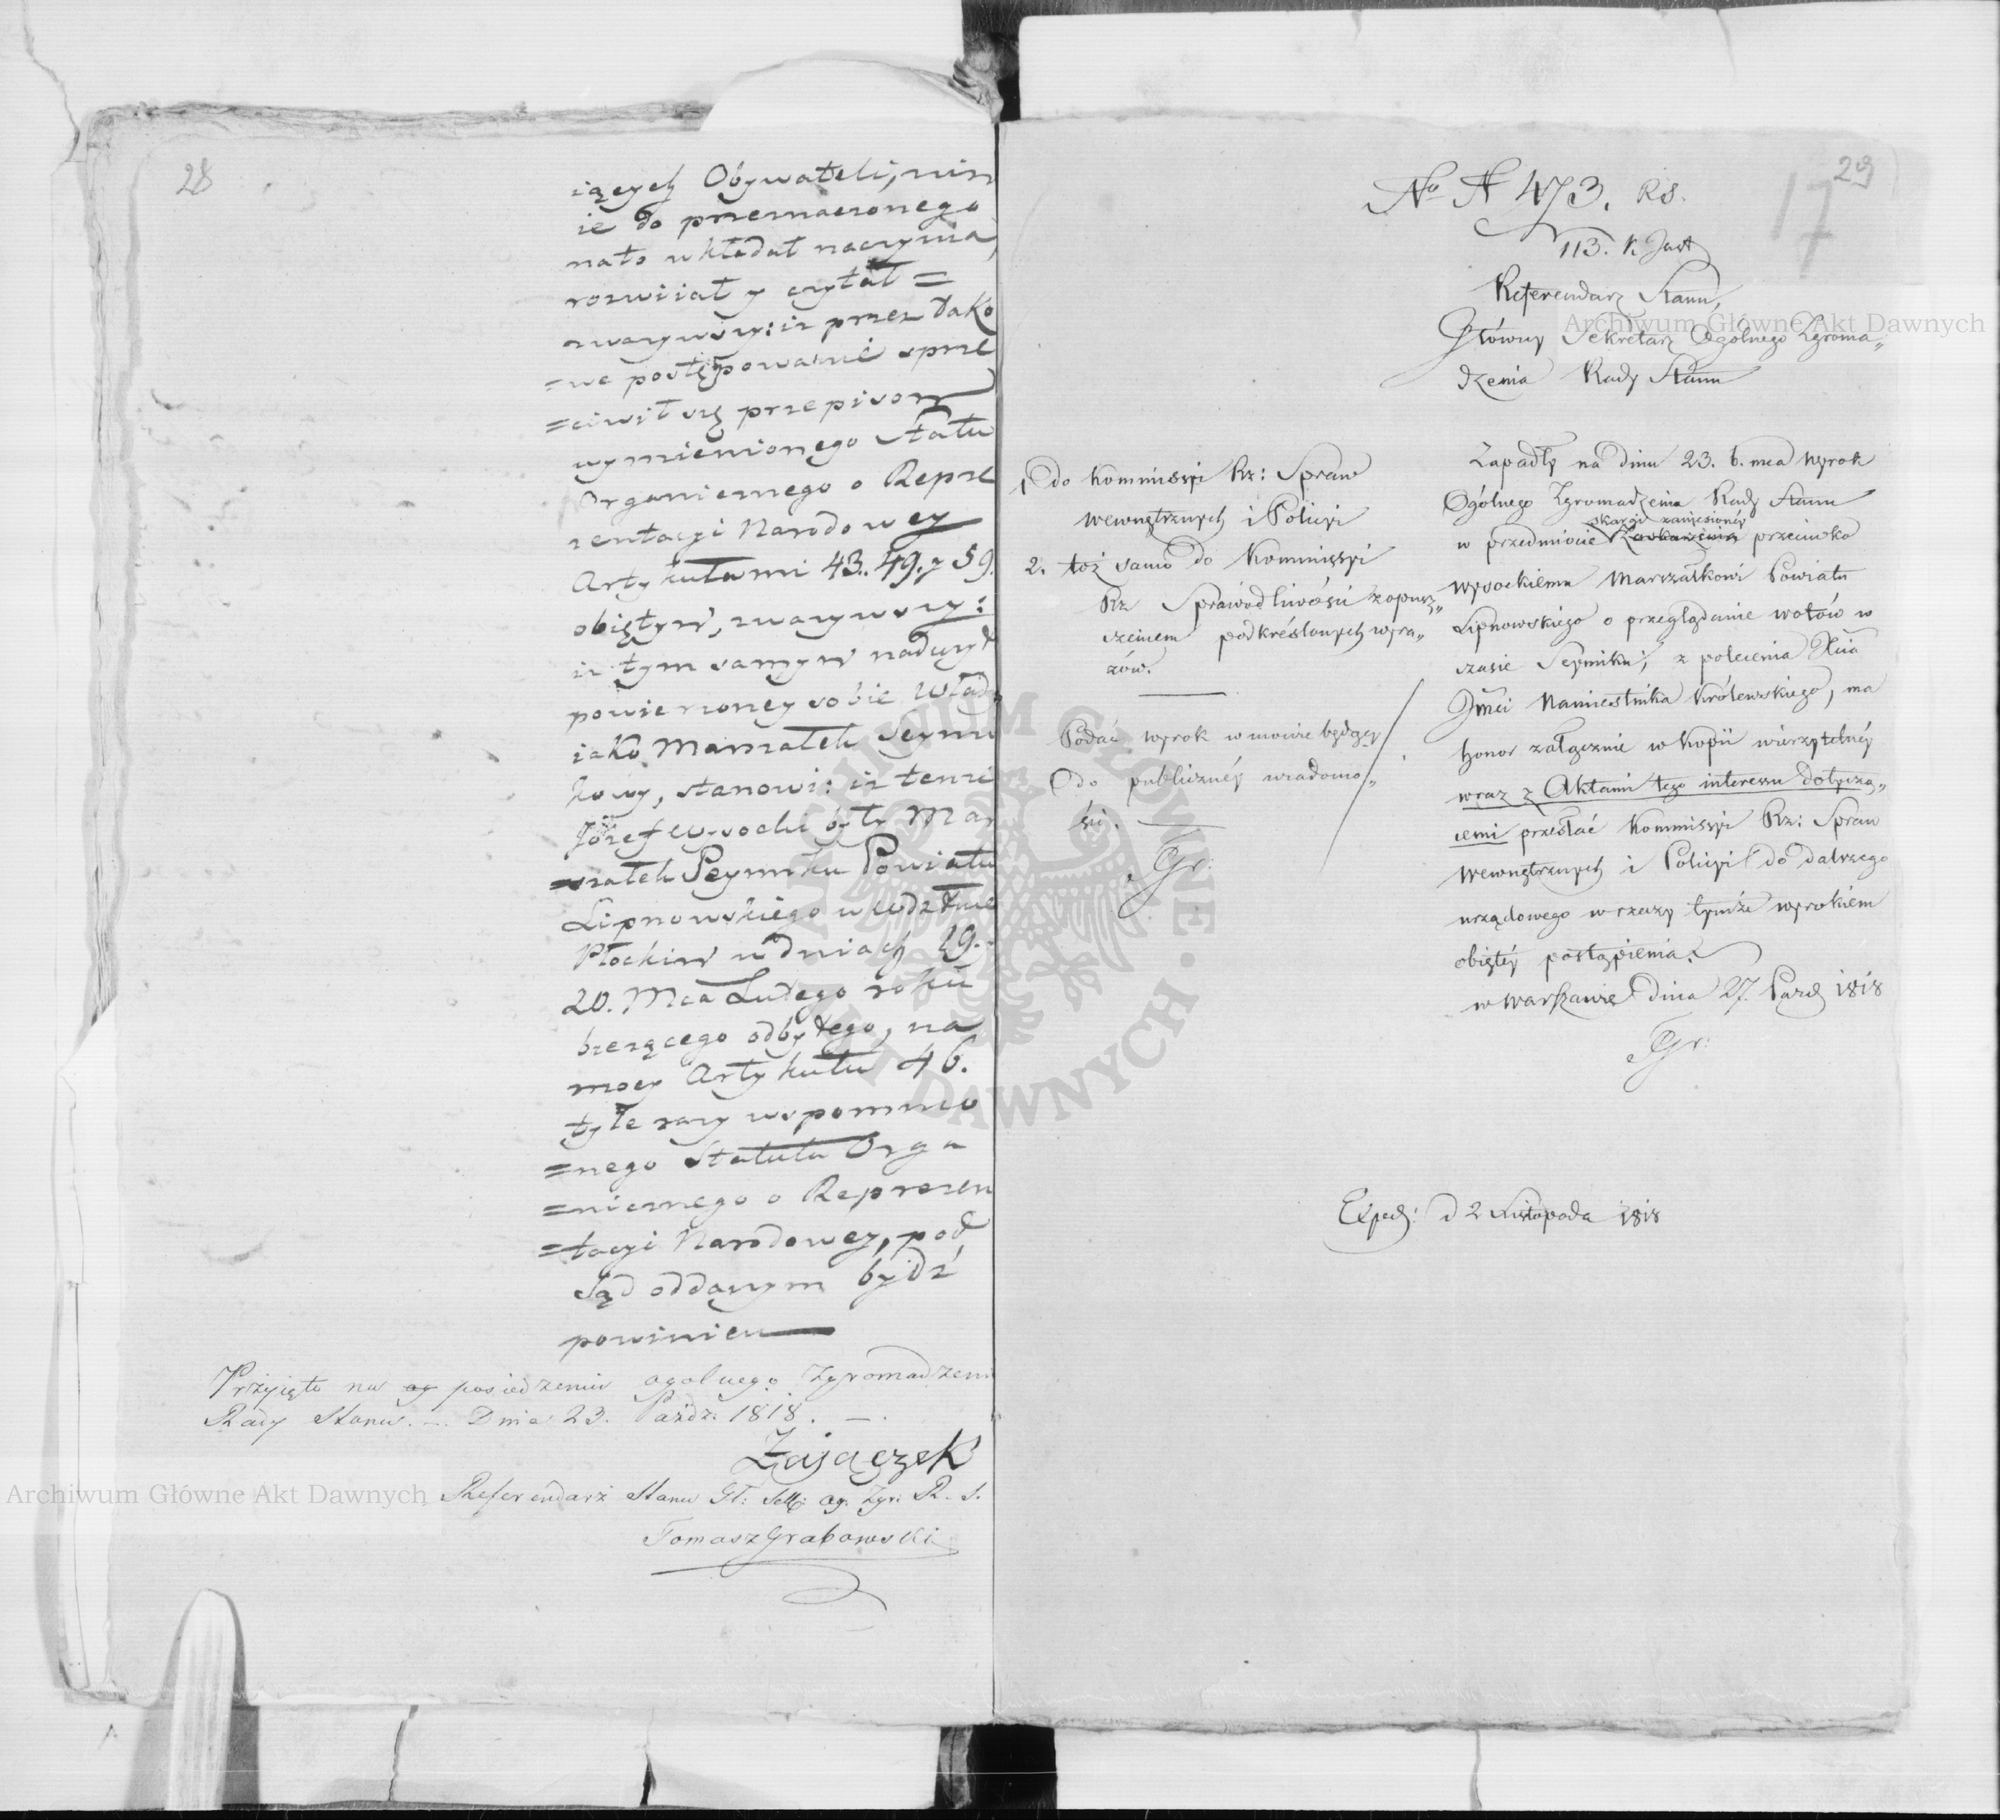 28
iących Obywateli, nim
ie do przeznaczonego
nato wkładał naczynia,
rozwiiał y czytał =
zważywszy: iż przez tako
=we postępowanie sprze
=ciwił się przepisom
wymienionego Statu
Organicznego o Repre
zentacyi Narodowey
Artykułami 43. 49. y 59.
obiętym, zważywszy:
iż tym samym nadużył
powierzoney sobie Władzy
iako Marszałek Seymi
kowy, stanowi: iż tenże
Józef Wysocki były Mar
=szałek Seymiku Powiatu
Lipnowskiego w Wdztwie
Płockim w dniach 19.
20. Mca Lutego roku
bieżącego odbytego, na
mocy Artykułu 46.
tyle razy wspomnio
=nego Statutu Orga
=nicznego o Reprezen
=tacyi Narodowey, pod
Sąd oddanym bydź
powinien
Przyięto na og posiedzeniu ogólnego Zgromadzeni
Rady Stanu. — Dnia 23. Paźdz. 1818. —.
Zajączek
Referendarz Stanu Gł: Sekr: og. Zgr: R. S.
Tomasz Grabowski
29
17
No N 473. RS.
113. K. Just
Referendarz Stanu,
Główny Sekretarz Ogólnego Zgroma„
dzenia Rady Stanu
1. do Kommissyi Rz: Spraw
wewnętrznych i Policyi
2. toż samo do Kommissyi
Rz Sprawiedliwości z opusz„
czeniem podkréślonych wyra„
zów.
Podać wyrok w mowie będący
do publicznéy wiadomo„
ści. —
Gr:
Zapadły na dniu 23. b. mca Wyrok
Ogólnego Zgromadzenia Rady Stanu
skargi zaniesionéy
w przedmiocie przeciwko
Wysockiemu Marszałkowi Powiatu
Lipnowskiego o przeglądanie wotów w
czasie Seymiku, z polecenia Xcia
Jmci Namiestnika Królewskiego, ma
honor załącznie w Kopii wierzytelnéy
wraz z Aktami tego interessu dotyczą„
cemi przesłać Kommissyi Rz: Spraw
Wewnętrznych i Policyi do dalszego
urządowego w rzeczy tymże wyrokiem
obiętéy postąpienia.
w Warszawie dnia 27. Pazd 1818
Gr:
Exped: d 2 Listopada 1818
Archiwum Główne Akt Dawnych
Archiwum Główne Akt Dawnych
ARCHIWUM GŁÓWNE • AKT DAWNYCH •